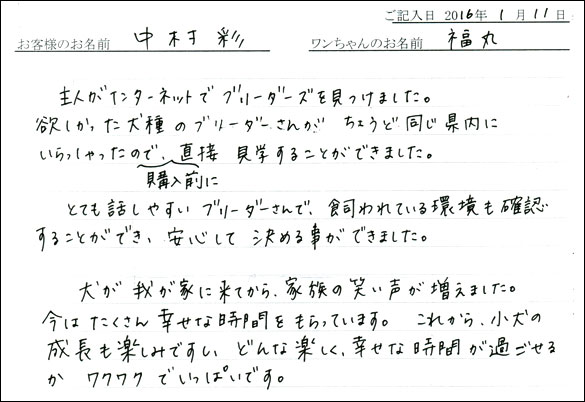 ご記入日 2016年 1月 11日
お客様のお名前 中村 彩 ワンちゃんのお名前 福丸
主人がインターネットで ブリーダーズを見つけました。
欲しかった犬種のブリーダーさんが ちょうど同じ県内に
いらっしゃったので、直接 見学することができました。
購入前に
とても話しやすい ブリーダーさんで、飼われている環境も確認
することができ、安心して 決める事ができました。
犬が 我が家に来てから、家族の笑い声が増えました。
今は たくさん 幸せな時間をもらっています。 これから、小犬の
成長も楽しみですし、どんな楽しく、幸せな時間が過ごせる
か ワクワク でいっぱいです。